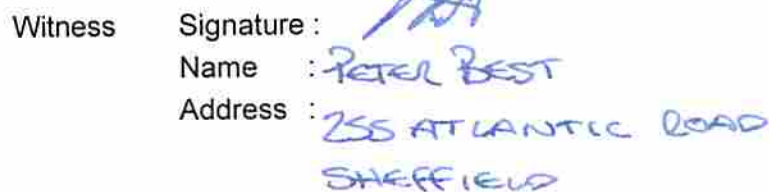 Witness Signature :
Name : PETER BEST
Address : 255 ATLANTIC ROAD
SHEFFIELD